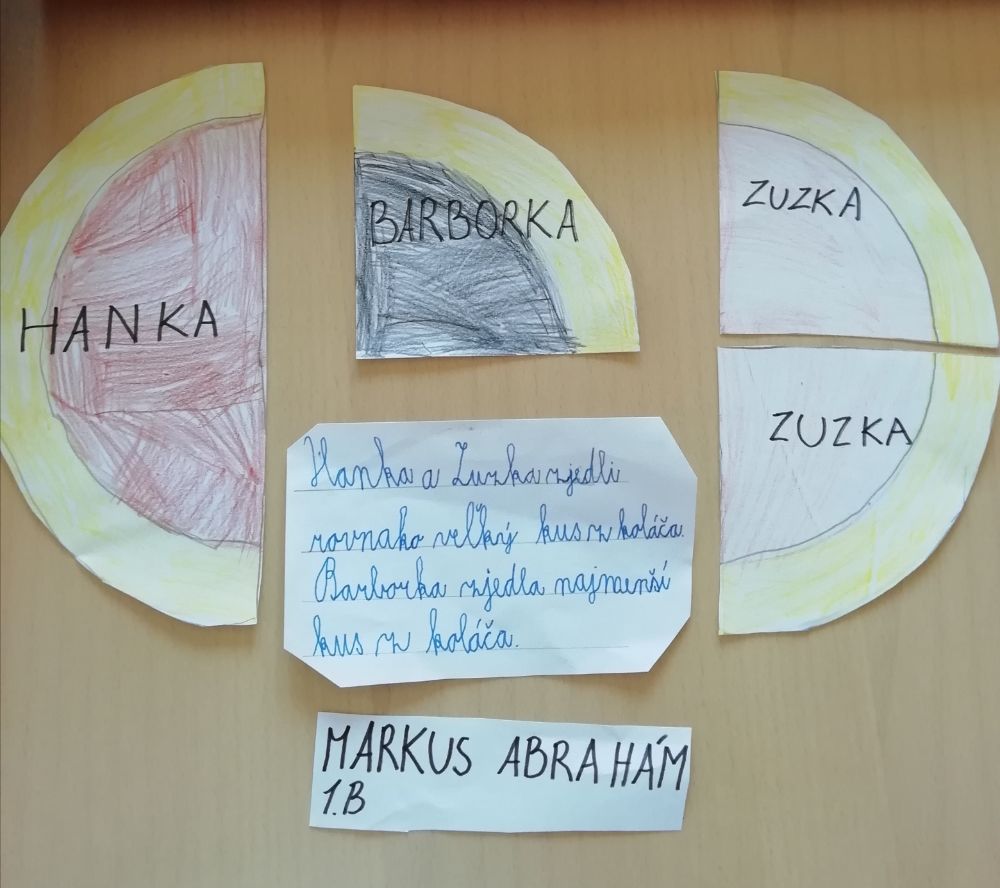 HANKA
BARBORKA
ZUZKA
ZUZKA
Hanka a Zuzka zjedli
rovnako veľký kus z koláča.
Barborka zjedla najmenší
kus z koláča.
MARKUS ABRAHÁM
1.B